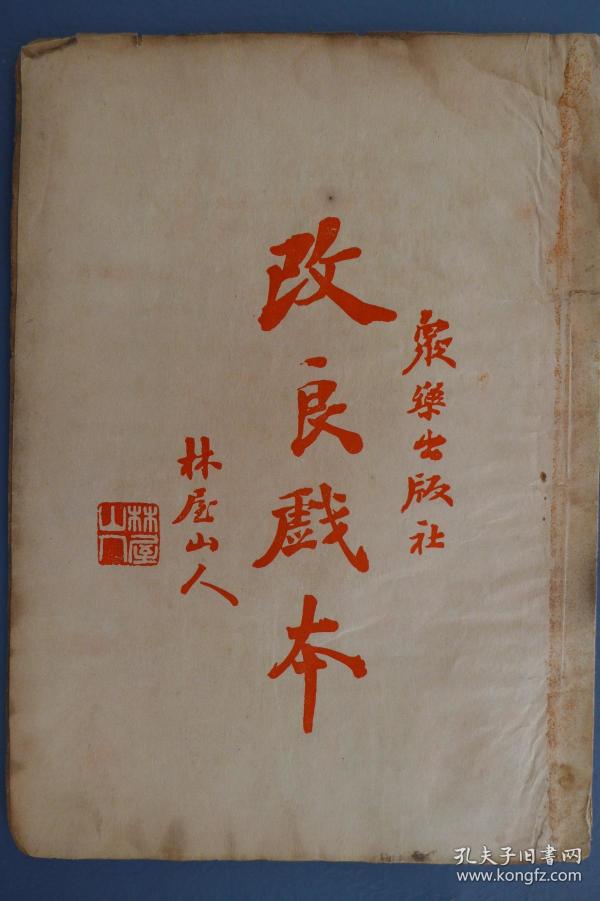 衆樂出版社
改良戲本
林屋山人
林屋山人
孔夫子旧書网
www.kongfz.com